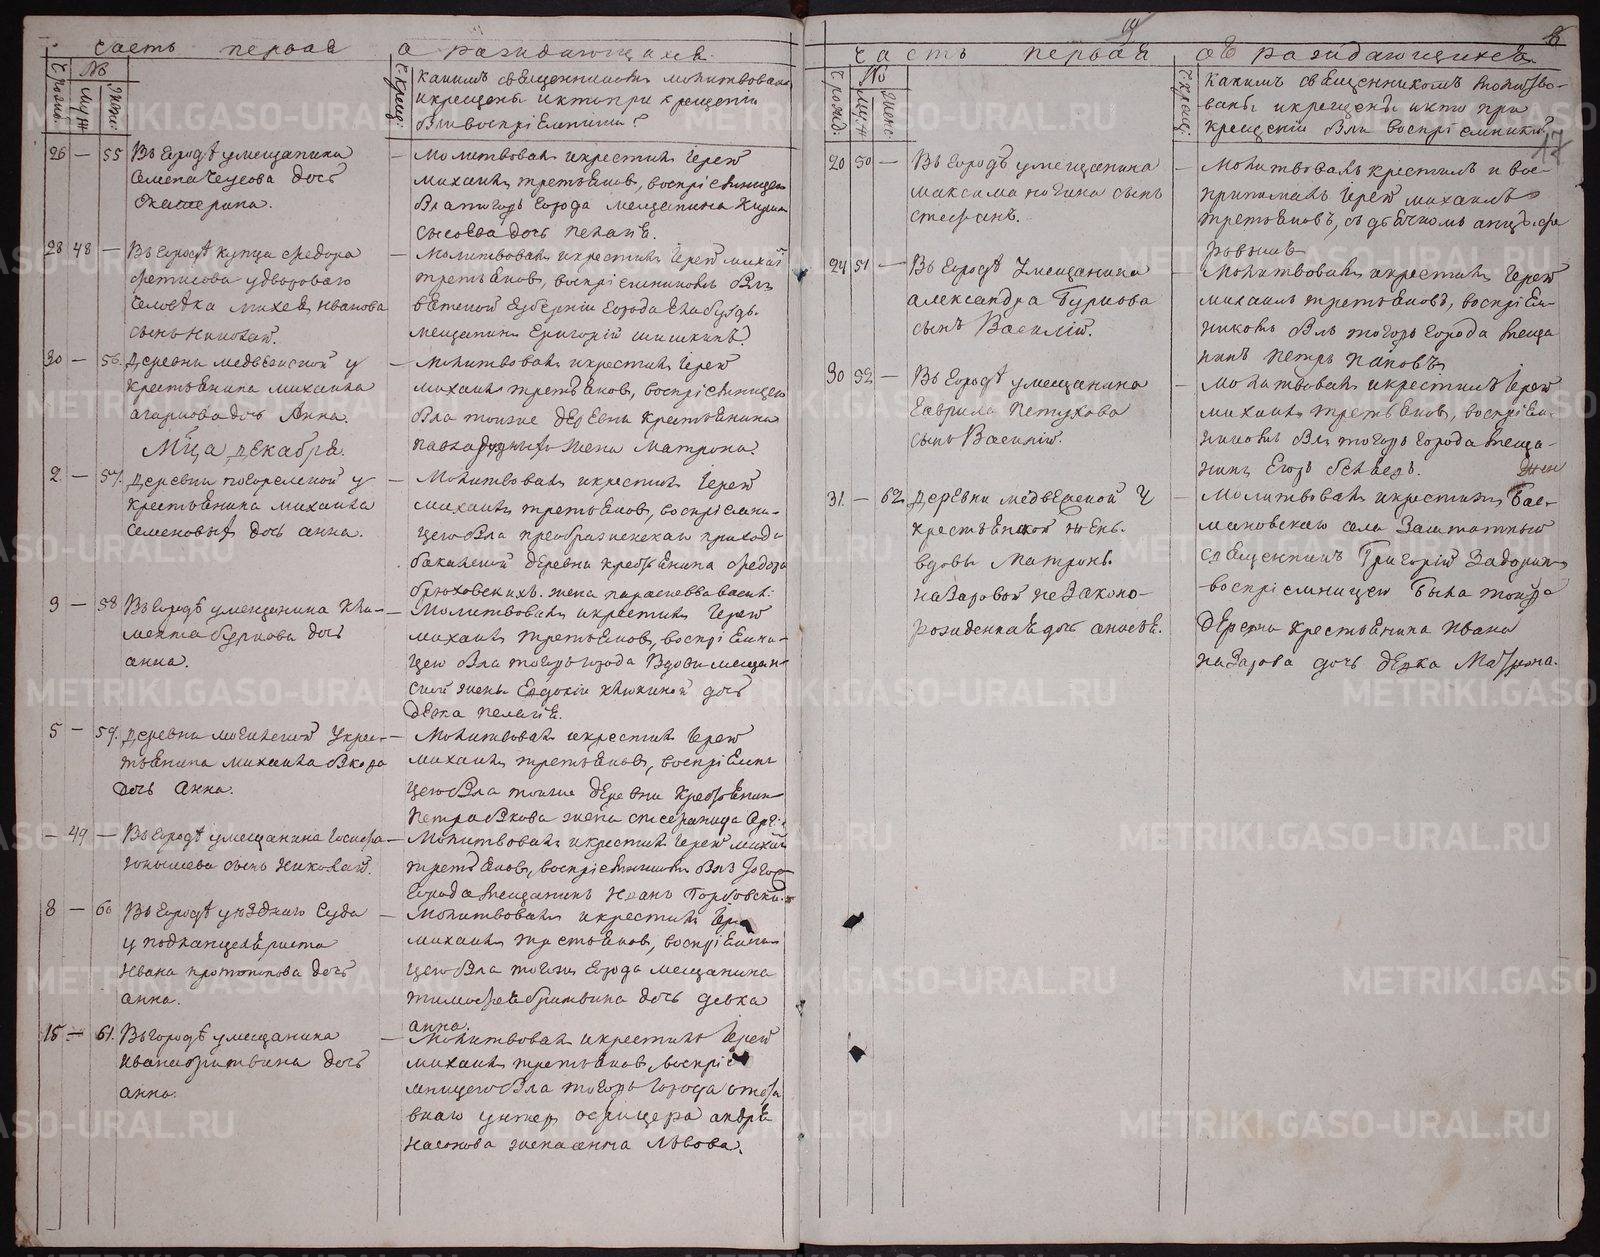 часть первая о раждающихся.
Число рожд:
№
Муж
Женс:
Число Крещ:
Какимъ священникомъ молитвованы
и крещены и кто при крещенiи
был воспрiемники?
26 — 55 Въ городѣ у мещанина
Семена дочь
Екатерина.
— Молитвовалъ и крестилъ Iерей
Михаилъ Третьяковъ, воспрiемницею
была тогоже города мещанина
Сысоева дочь Пелагея.
28 48 — Въ городѣ купца Федора
у двороваго
человѣка Михея Иванова
сынъ Николай.
— Молитвовалъ и крестилъ Iерей Михаил
Третьяковъ, воспрiемникомъ былъ
вятской губернiи города Елабуги
мещанинъ Григорiй Шишкинъ.
30 — 56. Деревни Медведской у
крестьянина Михаила
Агаркова дочь Анна.
— Молитвовалъ и крестилъ Iерей
Михаилъ Третьяковъ, воспрiемницею
была тоиже деревни крестьянина
Павла жена Матрона.
Мца декабря.
2. — 57. Деревни погорелской у
крестьянина Михаила
Семеновых дочь Анна.
— Молитвовалъ и крестилъ Iерей
Михаилъ Третьяковъ, воспрiемни-
цею была преображенскаго прихода
деревни крестьянина Федора
Брюховскихъ жена Парасковья
3 — 58 Въ городѣ у мещанина Кли-
мента Буркова дочь
Анна.
— Молитвовалъ и крестилъ Iерей
Михаилъ Третьяковъ, воспрiемни-
цею была тогожъ города вдовы мещан-
ской жены Евдокiи Клюкиной дочь
девка Пелагея.
5 — 59. Деревни могилской у крес-
тьянина Михаила Якова
дочь Анна.
— Молитвовалъ и крестилъ Iерей
Михаилъ Третьяковъ, воспрiемни
цею была тоиже деревни крестьянин
Петра Якова жена
— 49 — Въ городѣ у мещанина Iосифа
Юнышева сынъ Николай.
— Молитвовалъ и крестилъ Iерей Михаил
Третьяковъ, воспрiемникомъ былъ того
города мещанинъ Иванъ
8 — 60 Въ городѣ уѣзднаго суда
у подканцеляриста
Ивана Протопопова дочь
Анна.
— Молитвовалъ и крестилъ
Михаилъ Третьяковъ, воспрiемни
цею была тогожъ города мещанина
Тимофея Бритвина дочь девка
Анна.
15 — 61. Въ городѣ у мещанина
Ивана Бритвина дочь
Анна.
— Молитвовалъ и крестилъ Iерей
Михаилъ Третьяковъ, воспрiе
мницею была тогожъ города отста
внаго унтер офицера Андрея
Насонова жена Анна Львова.
часть первая о раждающихся.
17
Число рожд:
№
Муж
Женс:
Число Крещ:
Какимъ священникомъ молитво-
ваны и крещены и кто при
крещенiи был воспрiемники
20 50 — Въ городѣ у мещанина
Максима Ногина сынъ
Стефанъ.
— Молитвовалъ крестилъ и вос-
принималъ Iерей Михаилъ
Третьяковъ, съ дьячкомъ
24 51 — Въ городѣ у мещанина
Александра Гуркова
сынъ Василiй.
— Молитвовалъ и крестилъ Iерей
Михаилъ Третьяковъ, воспрiем-
никомъ былъ тогожъ города меща
нинъ Петръ Паповъ
30 52 — Въ городѣ у мещанина
Гаврила Петухова
сынъ Василiй.
— Молитвовалъ и крестилъ Iерей
Михаилъ Третьяковъ, воспрiем-
никомъ былъ тогожъ города меща-
нинъ Егоръ Беляевъ.
31. — 62 Деревни медведской у
крестьянской жены
вдовы Матроны
Назаровой незаконо-
рожденная дочь Анисья.
— Молитвовалъ и крестилъ Бас-
мановскаго села заштатный
священникъ Григорiй Задорин
воспрiемницею была тойже
деревни крестьянина Ивана
Назарова дочь девка Матрона.